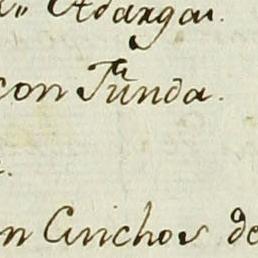 Adargas.
con Funda.
n Cinchos de